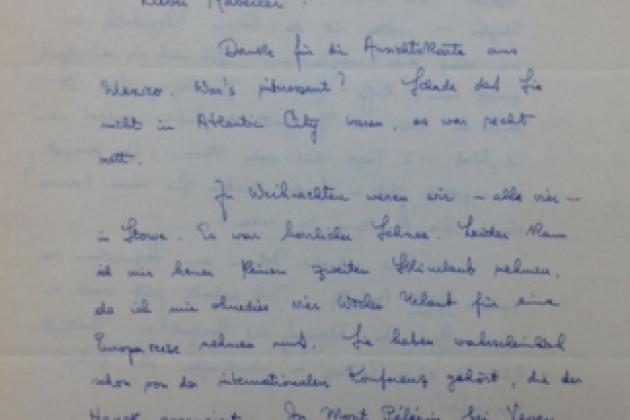 Lieber Marseiler!
Danke für die Ansichtskarte aus
Mexico. War's interessant? Schade daß Sie
nicht in Atlantic City waren, es war recht
nett.
Zu Weihnachten waren wir – alle vier –
in Stowe. Es war herrlicher Schnee. Leider kann
ich mir heuer keinen zweiten Schiurlaub nehmen,
da ich mir ohnedies vier Wochen Urlaub für eine
Europareise nehmen muß. Sie haben wahrscheinlich
schon von der internationalen Konferenz gehört, die der
Hayek arrangiert. In Mont Pélerin bei Vevey